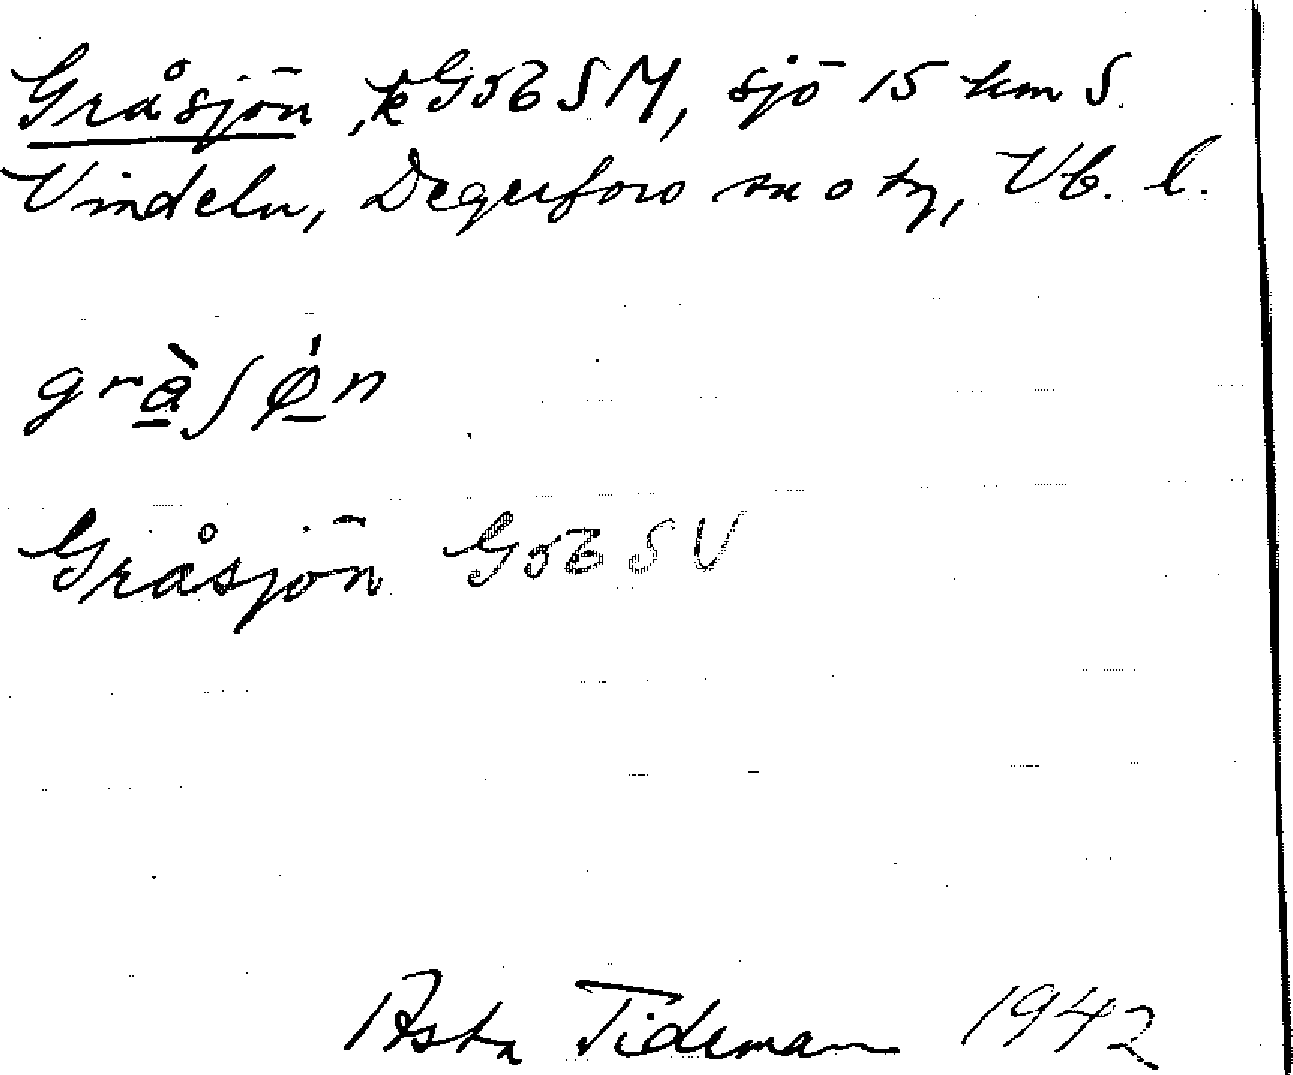 Gråsjön, k G56SM, sjö 15 km S.
Vindeln, Degerfors sn o tg, Vb. l.
gràʃǿn
Gråsjön G56SV
Asta Tideman 1942